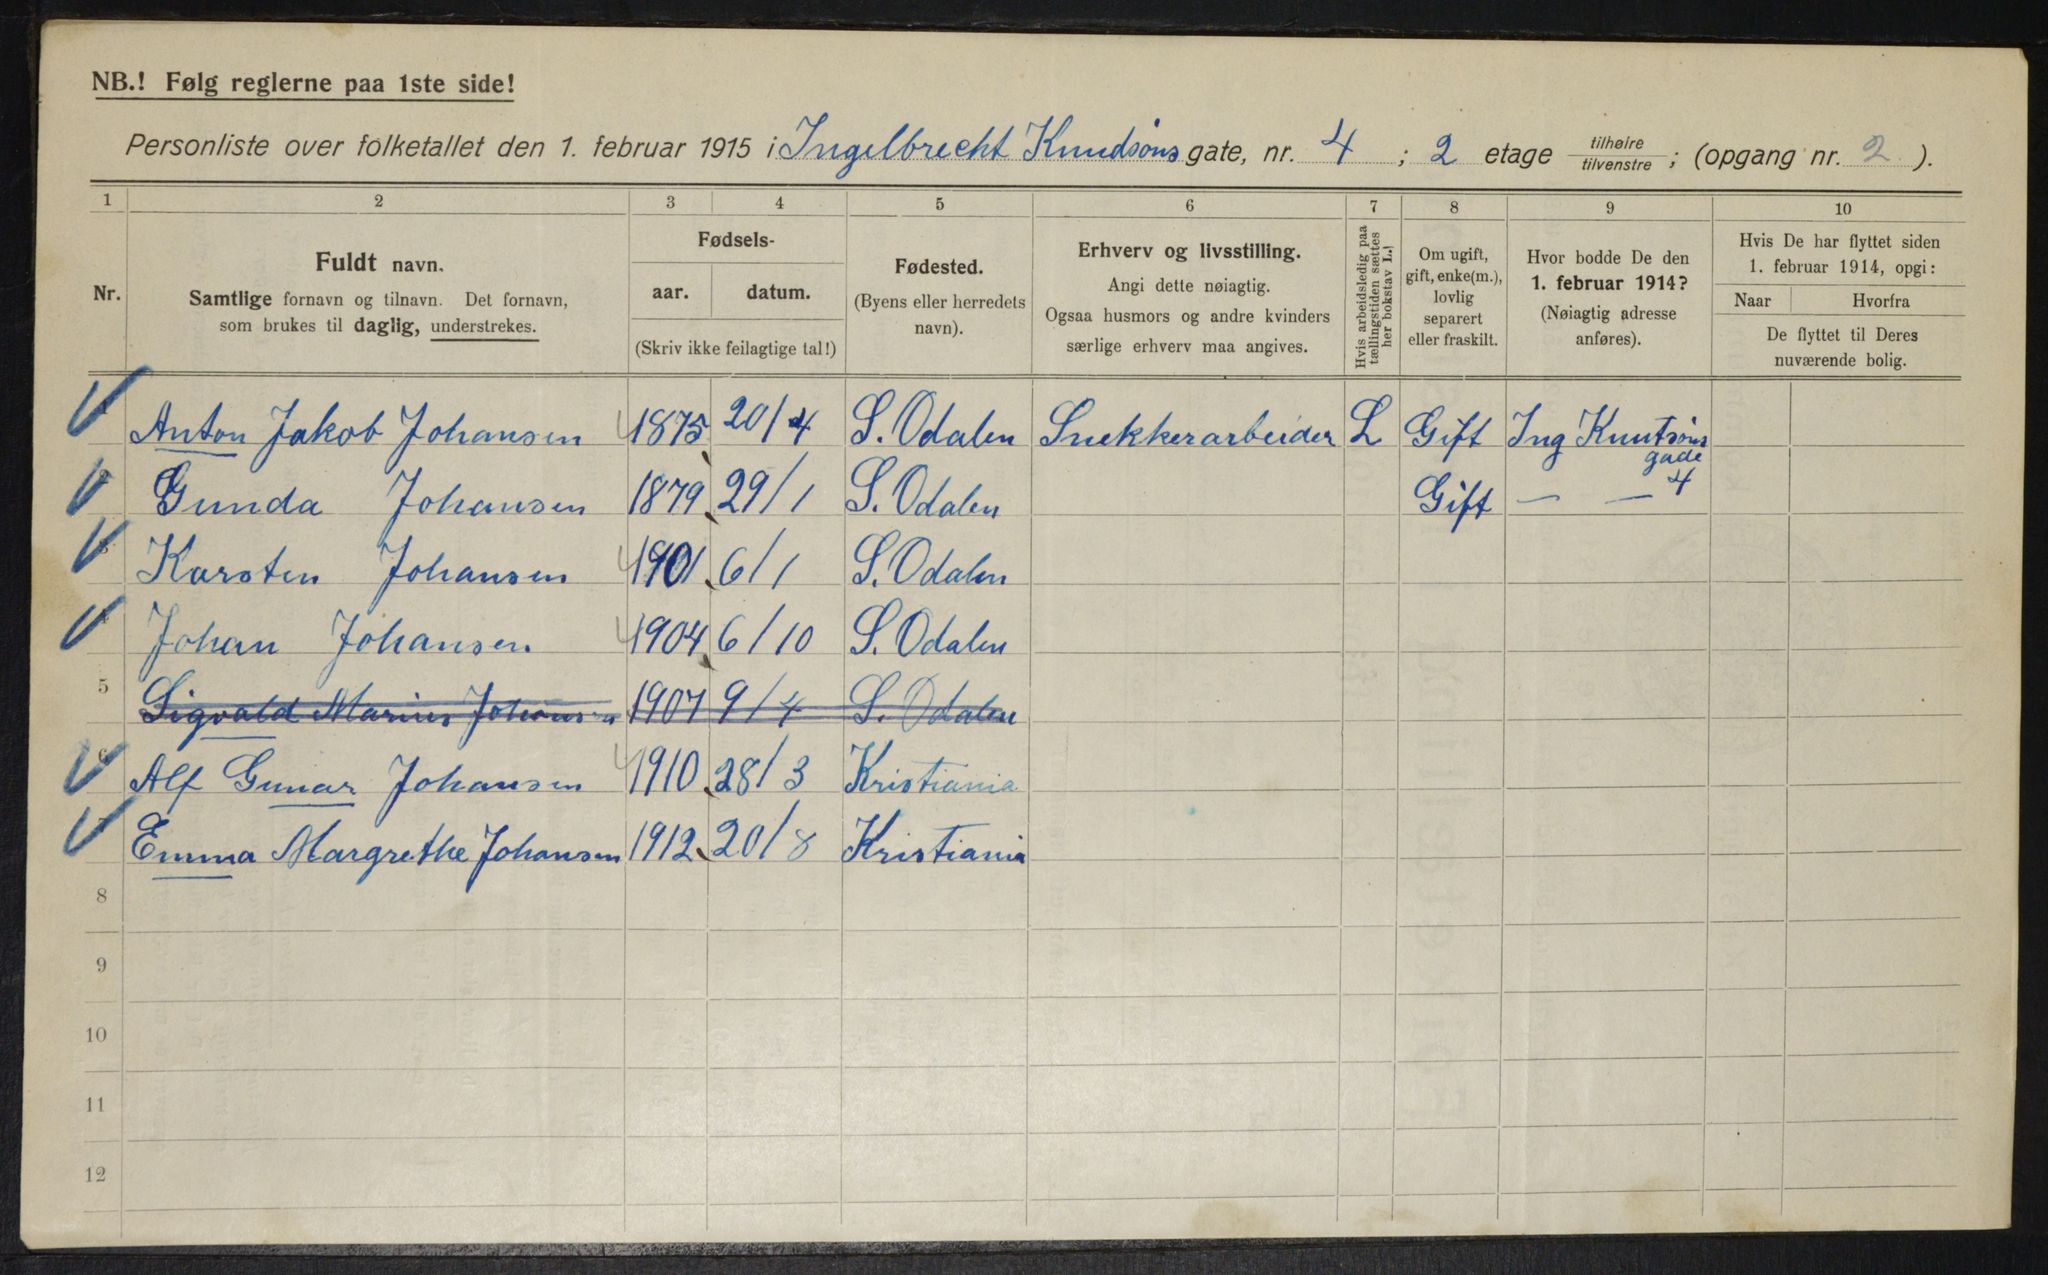 NB.! Følg reglerne paa 1ste side!
Personliste over folketallet den 1. februar 1915 i Ingelbrecht Knudsøns gate, nr. 4 ; 2 etage tilhøire / tilvenstre ; (opgang nr. 2 ).
1 2 3 4 5 6 7 8 9 10
Nr.
Fuldt navn.
Samtlige fornavn og tilnavn. Det fornavn,
som brukes til daglig, understrekes.
Fødsels-
aar. datum.
(Skriv ikke feilagtige tal!)
Fødested.
(Byens eller herredets
navn).
Erhverv og livsstilling.
Angi dette nøiagtig.
Ogsaa husmors og andre kvinders
særlige erhverv maa angives.
Hvis arbeidsledig paa
tællingstiden sættes
her bokstav L.!
Om ugift,
gift, enke(m.),
lovlig
separert
eller fraskilt.
Hvor bodde De den
1. februar 1914?
(Nøiagtig adresse
anføres).
Hvis De har flyttet siden
1. februar 1914, opgi:
Naar Hvorfra
De flyttet til Deres
nuværende bolig.
1 Anton Jakob Johansen 1875 20/4 S. Odalen Snekkerarbeider L Gift Ing Knutsøns
gade
4
2 Gunda Johansen 1879 29/1 S. Odalen Gift — —
3 Karsten Johansen 1901 6/1 S. Odalen
4 Johan Johansen 1904 6/10 S. Odalen
5 Sigvald Marius Johansen 1907 9/4 S. Odalen
6 Alf Gunar Johansen 1910 28/3 Kristiania
7 Emma Margrethe Johansen 1912 20/8 Kristiania
8
9
10
11
12